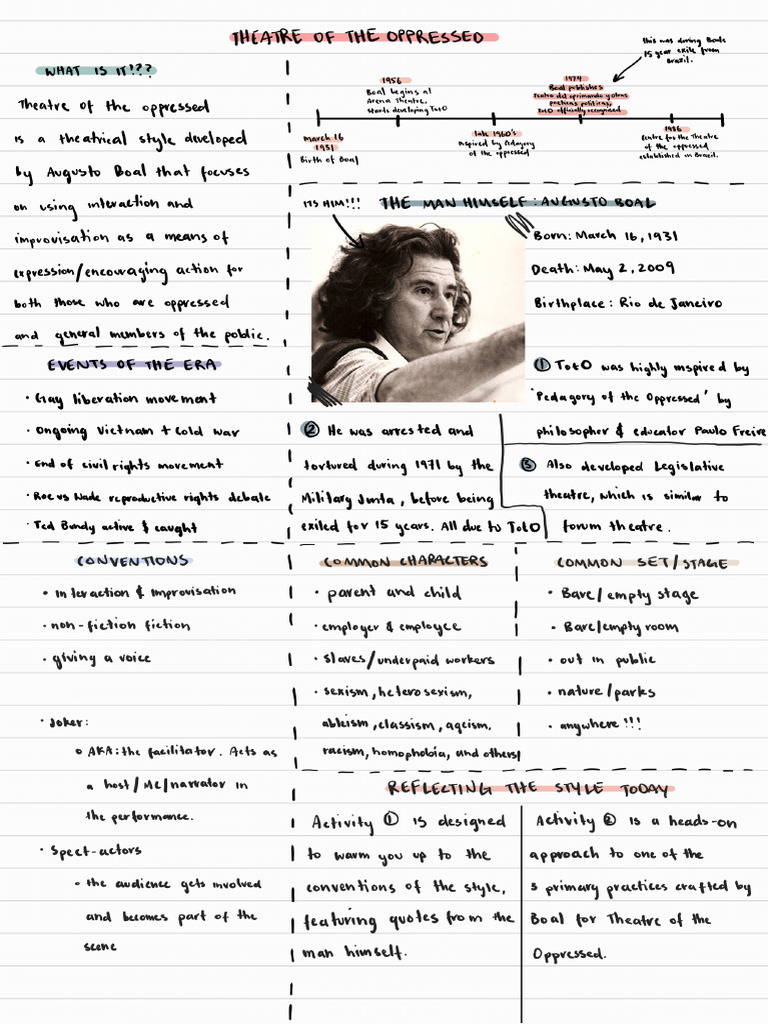 THEATRE OF THE OPPRESSED
WHAT IS IT!??
Theatre of the oppressed
is a theatrical style developed
by Augusto Boal that focuses
on using interaction and
improvisation as a means of
expression/encouraging action for
both those who are oppressed
and general members of the public.
this was during Boals
15 year exile from
Brazil.
1956
Boal begins at
Arena Theatre,
starts developing TotO
1974
Boal publishes
Teatro del oprimido y otras
poeticas politicas,
TotO officially recognized
March 16
1931
Birth of Boal
late 1960's
inspired by Pedagogy
of the oppressed
1986
Centre for the Theatre
of the oppressed
established in Brazil.
ITS HIM!!!
THE MAN HIMSELF: AUGUSTO BOAL
Born: March 16, 1931
Death: May 2, 2009
Birthplace: Rio de Janeiro
① TotO was highly inspired by
'Pedagory of the Oppressed' by
philosopher & educator Paulo Freire
② He was arrested and
tortured during 1971 by the
Military Junta, before being
exiled for 15 years. All due to TotO
③ Also developed Legislative
theatre, which is similar to
forum theatre.
EVENTS OF THE ERA
• Gay liberation movement
• Ongoing Vietnam + Cold war
• End of civil rights movement
• Roe vs Wade reproductive rights debate
• Ted Bundy active & caught
CONVENTIONS
• Interaction & improvisation
• non-fiction fiction
• giving a voice
• Joker:
○ AKA: the facilitator. Acts as
a host/MC/narrator in
the performance.
• Spect-actors
• the audience gets involved
and becomes part of the
scene
COMMON CHARACTERS
• parent and child
• employer & employee
• slaves/underpaid workers
• sexism, heterosexism,
ableism, classism, ageism,
racism, homophobia, and others
COMMON SET/STAGE
• Bare/empty stage
• Bare/empty room
• out in public
• nature/parks
• anywhere!!!
REFLECTING THE STYLE TODAY
Activity ① is designed
to warm you up to the
conventions of the style,
featuring quotes from the
man himself.
Activity ② is a heads-on
approach to one of the
5 primary practices crafted by
Boal for Theatre of the
Oppressed.